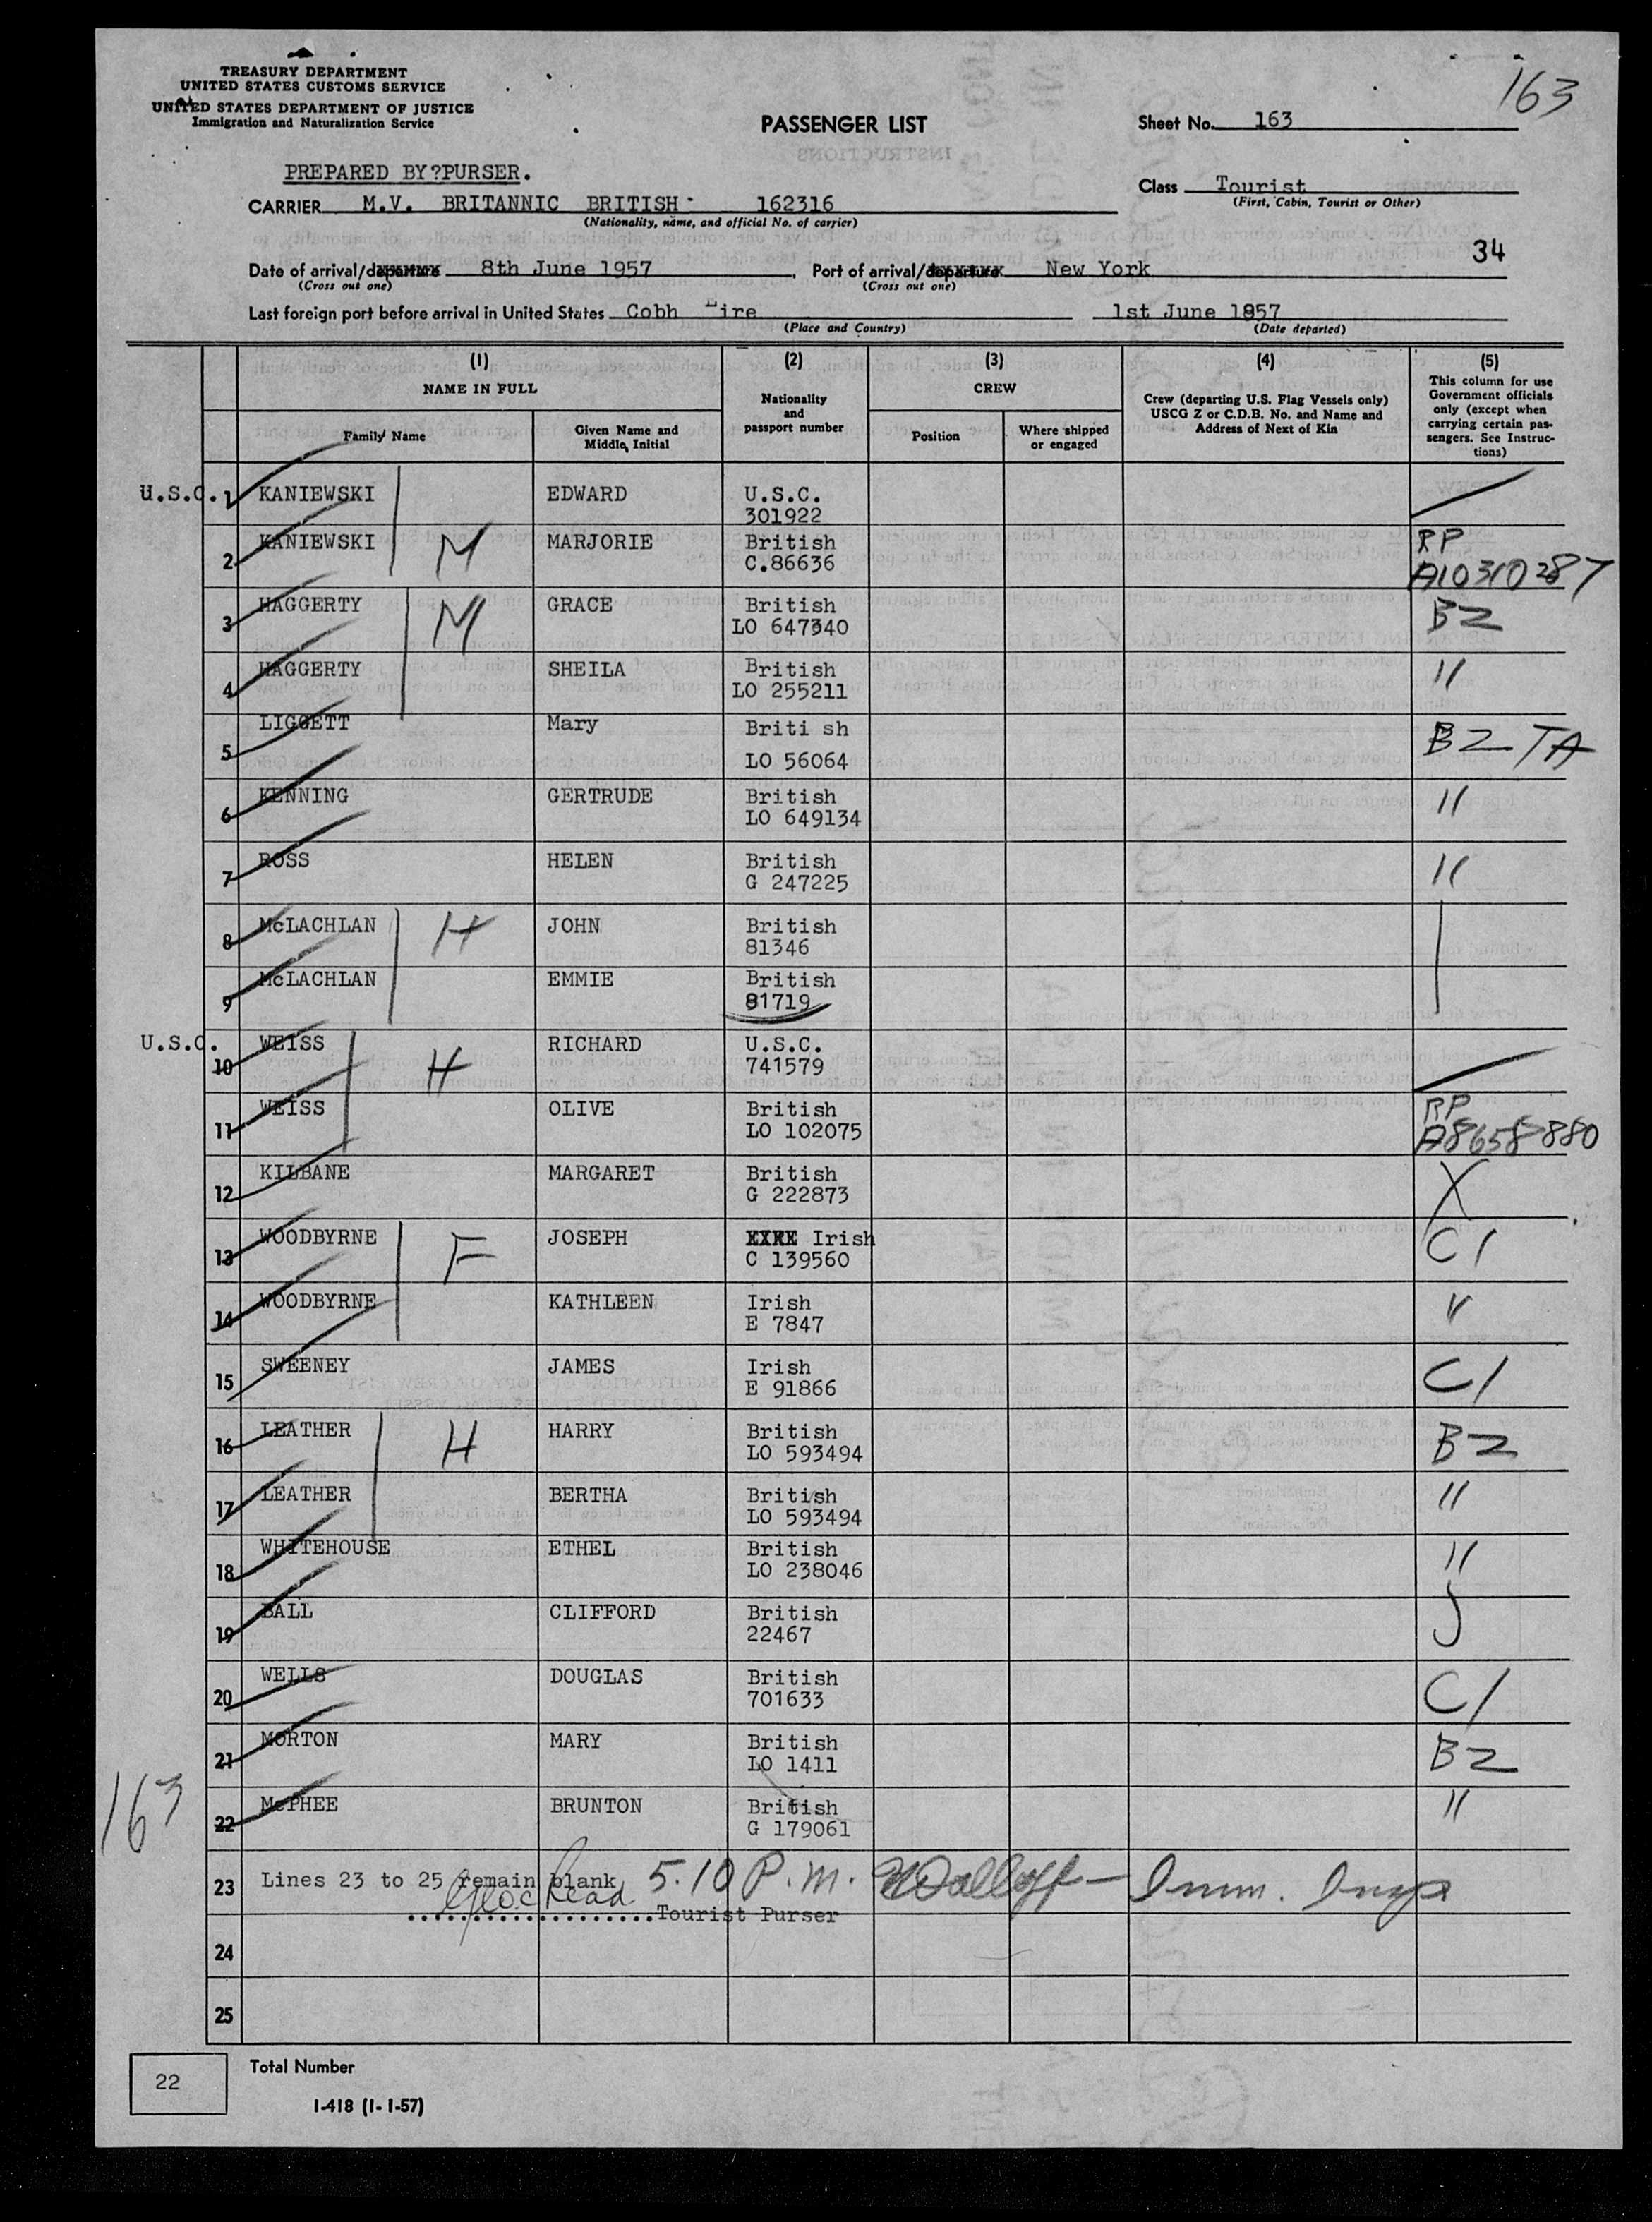 TREASURY DEPARTMENT
UNITED STATES CUSTOMS SERVICE
UNITED STATES DEPARTMENT OF JUSTICE
Immigration and Naturalization Service
PASSENGER LIST
Sheet No. 163
163
PREPARED BY?PURSER.
CARRIER M.V. BRITANNIC BRITISH 162316
(Nationality, name, and official No. of carrier)
Class Tourist
(First, Cabin, Tourist or Other)
34
Date of arrival/departure 8th June 1957. Port of arrival/departure New York
(Cross out one) (Cross out one)
Last foreign port before arrival in United States Cobh Eire 1st June 1957
(Place and Country) (Date departed)
(1) (2) (3) (4) (5)
NAME IN FULL
Family Name
Given Name and Middle Initial
Nationality and passport number
CREW
Position
Where shipped or engaged
Crew (departing U.S. Flag Vessels only)
USCG Z or C.D.B. No. and Name and
Address of Next of Kin
This column for use
Government officials
only (except when
carrying certain pas-
sengers. See Instruc-
tions)
U.S.C. 1 KANIEWSKI EDWARD U.S.C.
301922
2 KANIEWSKI M MARJORIE British RP
C.86636 A10310287
3 HAGGERTY M GRACE British B2
LO 647340
4 HAGGERTY SHEILA British "
LO 255211
5 LIGGETT Mary Briti sh B2 TA
LO 56064
6 KENNING GERTRUDE British "
LO 649134
7 ROSS HELEN British "
G 247225
8 McLACHLAN H JOHN British
81346
9 McLACHLAN EMMIE British
81719
U.S.C. 10 WEISS H RICHARD U.S.C.
741579
11 WEISS OLIVE British RP
LO 102075 A8658880
12 KILBANE MARGARET British X
G 222873
13 WOODBYRNE F JOSEPH Irish C1
C 139560
14 WOODBYRNE KATHLEEN Irish "
E 7847
15 SWEENEY JAMES Irish C1
E 91866
16 LEATHER H HARRY British B2
LO 593494
17 LEATHER BERTHA British "
LO 593494
18 WHITEHOUSE ETHEL British "
LO 238046
19 BALL CLIFFORD British
22467
20 WELLS DOUGLAS British C1
701633
21 MORTON MARY British B2
LO 1411
163
22 McPHEE BRUNTON British "
G 179061
23 Lines 23 to 25 remain blank 5.10 P.m. Imm. Insp
..................Tourist Purser
24
25
22 Total Number
I-418 (1-1-57)